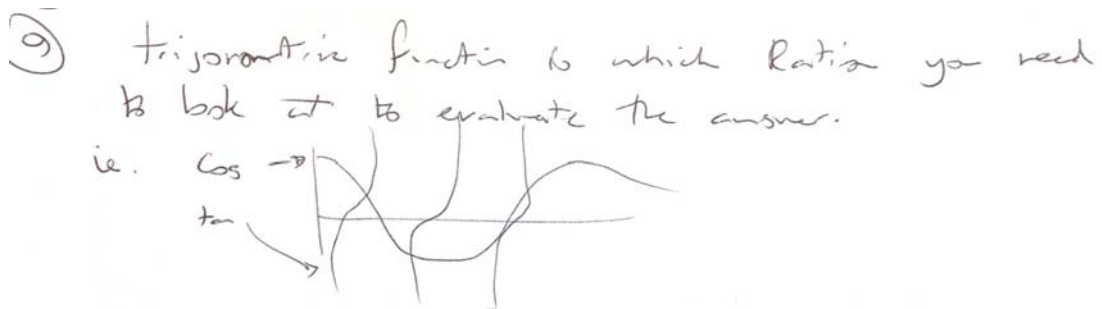 9
trigonometric function is which Ratio you need
to look at to evaluate the answer.
ie. Cos →
tan